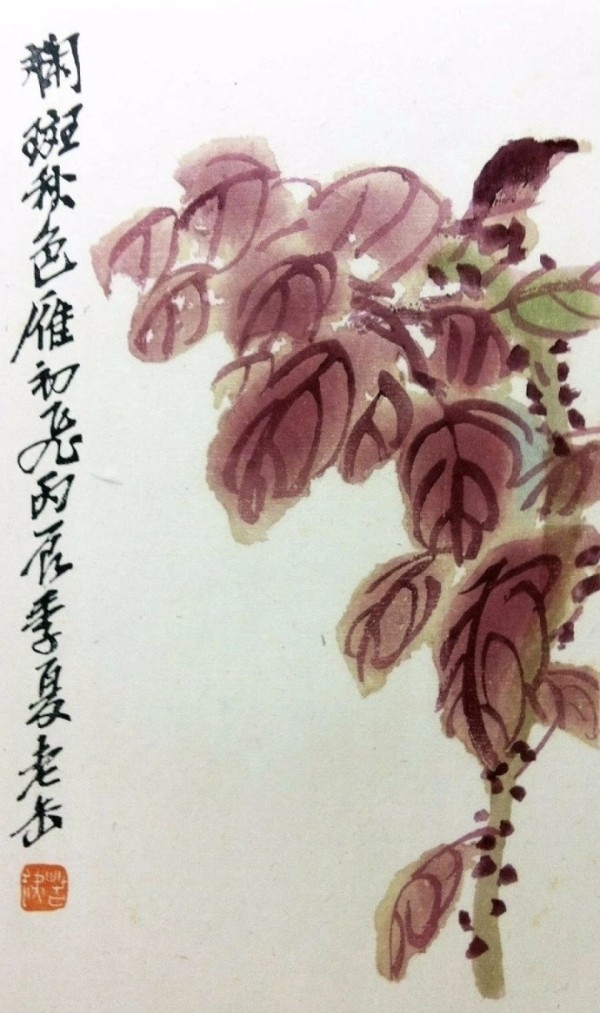 斓斑秋色雁初飞丙辰季夏老缶
苦铁